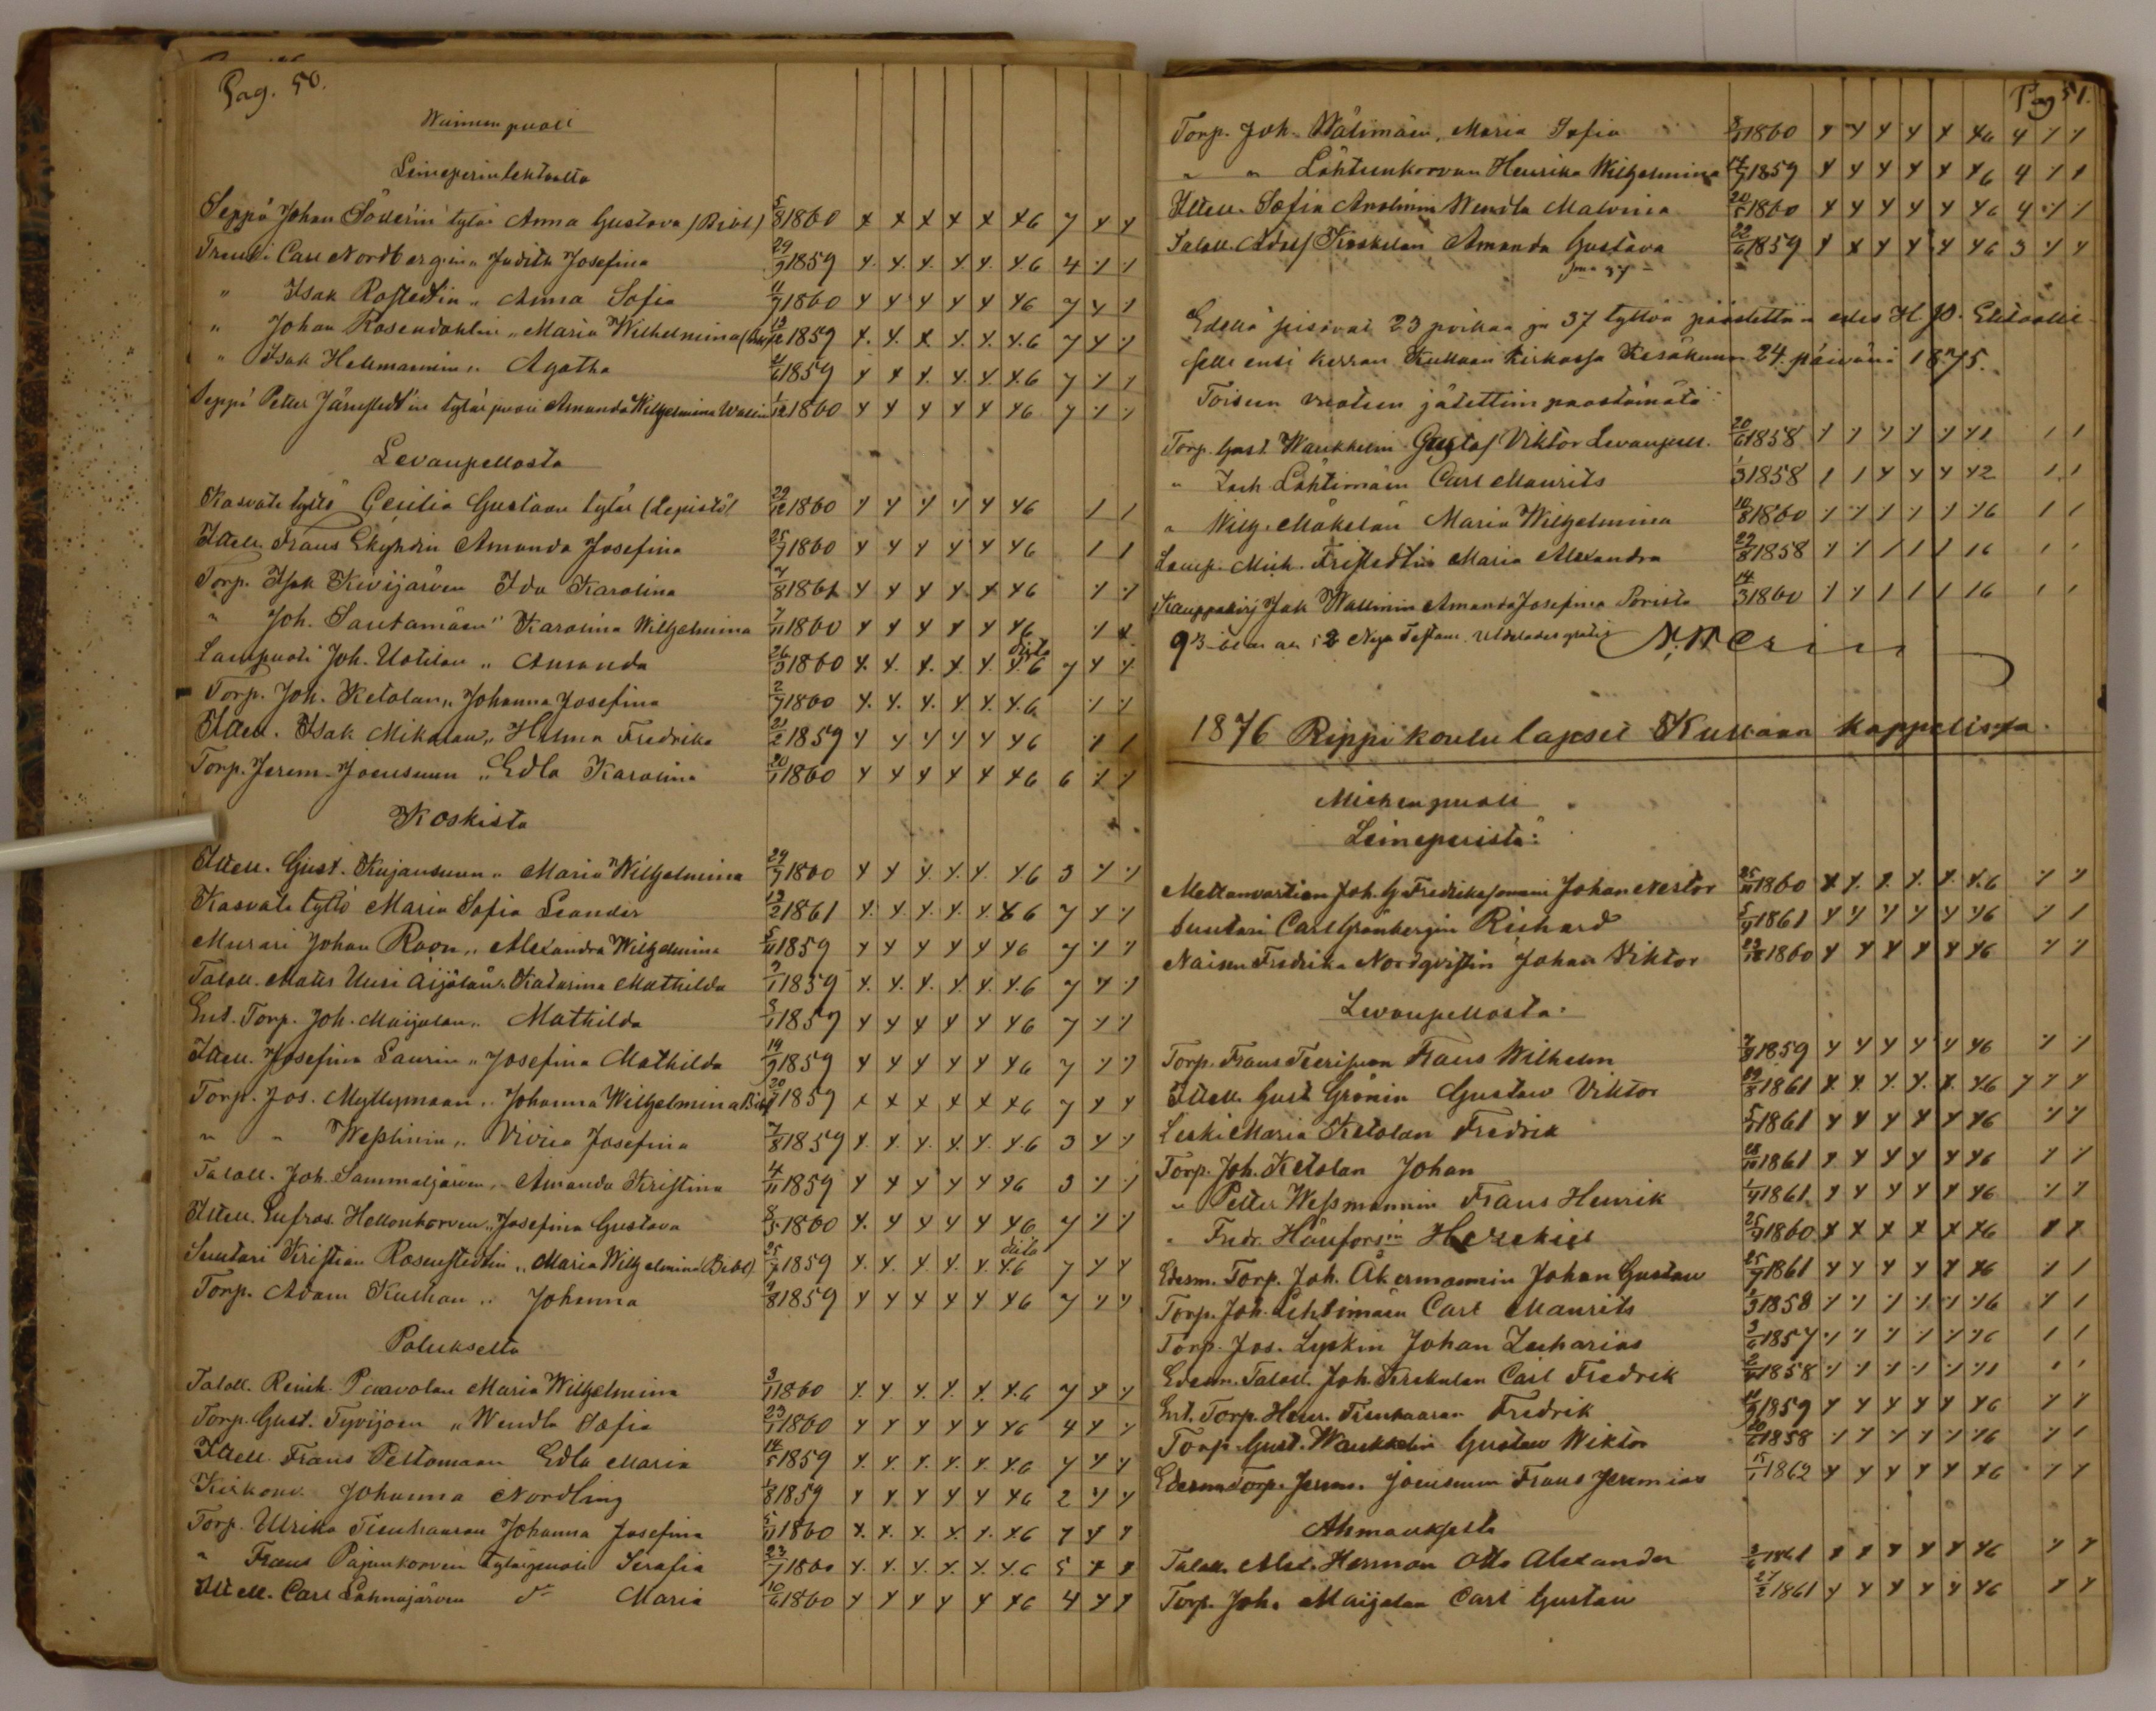 Pag. 50.
Waimon puoli
Leineperin tehtaalta
Seppä Johan Söderin tytär Anna Gustava (Bibl.) 5/8 1860 x x x x x x6 7 x x
Carl Nordbergin " Judith Josefina 29/9 1859 x x x x x x6 4 / /
" Isak Rostedtin " Anna Sofia 11/7 1860 x x x x x x6 7 x /
" Johan Rosendahlin " Maria Wilhelmina 13/12 1859 x x x x x x6 7 x /
" Isak Hellmannin " Agatha 1859 x x x x x x6 7 / /
Seppä Petter Järnstedtin tytär puoli Amanda Wilhelmina Wallin 1/12 1860 x x x x x x6 7 / /
Levanpellosta
Kasvate tyttö Cecilia Gustaan tytär (Lepistö) 29/12 1860 x x x x x x6 / /
Itell. Frans Amanda Josefina 25/7 1860 x x x x x x6 / /
Torp. Isak Kivijärven Ida Karolina 7/8 1861 x x x x x x6 / /
" Joh. Santamäen " Karolina Wilhelmina 7/11 1860 x x x x x x6 / x
Lampuoti Joh. Uotilan " Amanda 26/3 1860 x x x x x x6 7 x x
Torp. Joh. Ketolan " Johanna Josefina 2/9 1860 x x x x x x6 / /
Itell. Isak Mikolan " Helma Fredrika 21/2 1859 x x x x x x6 / /
Torp. Jerem. Joensuun " Edla Karolina 20/1 1860 x x x x x x6 6 / /
Koskista
Itell. Gust. Kujansuun " Maria Wilhelmina 29/7 1860 x x x x x x6 3 / /
Kasvate tyttö Maria Sofia Leander 13/2 1861 x x x x x x6 7 x /
Murari Johan Roon " Alexandra Wilhelmina 5/11 1859 x x x x x x6 7 / /
Taloll. Matts Uusi Äijälän " Katarina Mathilda 1859 x x x x x x6 7 x /
Ent. Torp. Joh. Maijalan " Mathilda 1859 x x x x x x6 7 / /
Itell. Josefina Laurin " Josefina Mathilda 19/9 1859 x x x x x x6 7 / /
Torp. Jos. Myllymaan " Johanna Wilhelmina Bibl. 20/7 1859 x x x x x x6 7 x x
" " Wesslinin " Viviea Josefina 7/8 1859 x x x x x x6 3 x /
Taloll. Joh. Sammaljärven " Amanda Kristina 4/11 1859 x x x x x x6 3 / /
Itell. Eufros. Hellonkorven " Josefina Gustava 8/5 1860 x x x x x x6 7 / /
Suutari Kristian Rosenstedtin " Maria Wilhelmina (Bibl.) 25/7 1859 x x x x x x6 7 x x
Torp. Adam Kulhan " Johanna 9/8 1859 x x x x x x6 7 x x
Palukselta
Taloll. Reinh. Paavolan Maria Wilhelmina 3/11 1860 x x x x x x6 7 x /
Torp. Gust. Tyvijoen " Wendla Sofia 23/1 1860 x x x x x x6 4 x /
Itell. Frans Peltomaan Edla Maria 14/5 1859 x x x x x x6 7 x x
Kirkonv. Johanna Nordling 1/8 1859 x x x x x x6 2 x x
Torp. Ulrika Tienhaaran Johanna Josefina 5/11 1860 x x x x x x6 7 x x
" Frans Pajunkorven tytär puoli Serafia 23/7 1860 x x x x x x6 5 x x
Itell. Carl Lahnajärven do Maria 10/6 1860 x x x x x x6 4 x x
Pag 51.
Torp. Joh. Välimäen, Maria Sofia 1860 x x x x x x6 4 / /
" " Lähteenkorvan Henrika Wilhelmina 1859 x x x x x x6 4 / /
Itell. Sofia Anolinin Wendla Malvina 20/5 1860 x x x x x x6 4 / /
Taloll. Adolf Koskelan Amanda Gustava 22/6 1859 x x x x x x6 3 / x
Sma 37
Edellä seisovat 23 poikaa ja 37 tyttöä päästettiin edes H. P. Ehtoolli
selle ensi kerran Kullaan kirkossa Kesäkuun 24. päivänä 1875.
Toiseen vuoteen jätettiin paastämätä:
Torp. Gust. Waukkelin Gustaf Viktor Levanpell. 20/6 1858 / / / / / x1 / /
" Zach. Lähtimäen Carl Maurits 1/3 1858 / / x x x x2 / /
" Wilh. Mäkelän Maria Wilhelmina 10/8 1860 / / / / / /6 / /
Lamp. Mich. Fristedtin Maria Alexandra 29/8 1858 / / / / / 16 / /
Kauppakirj. Jak Wallinin Amanda Josefina Porista 14/3 1860 / / / / / 16 / /
Nya Testam. utdelades gratis
1876 Rippikoulu lapset Kullaan kappelissa.
Miehen puoli
Leineperistä:
Mettanvartian Joh. G. Fredrikssonin Johan Nestor 25/11 1860 x x x x x x6 / /
Suutari Carl Grönbergin Richard 5/9 1861 x x x x x x6 / /
Naisen Fredrika Nordqvistin Johan Viktor 23/12 1860 x x x x x x6 / /
Levanpellosta:
Torp. Frans Teerisuon Frans Wilhelm 1859 x x x x x x6 / /
Itell. Gust. Grönin Gustaw Viktor 1861 x x x x x x6 7 x x
Leski Maria Ketolan Fredrik 1861 x x x x x x6 / /
Torp. Joh. Ketolan Johan 1861 x x x x x x6 / /
" Petter Wessmannin Frans Henrik 1861 x x x x x x6 / /
" Fredr. Hänforsin Hezekiel 25/9 1860 x x x x x x6 x x
Edesm. Torp. Joh. Åkermannin Johan Gustaw 25/9 1861 x x x x x x6 / /
Torp. Joh. Lehtimäen Carl Maurits 1/3 1858 / / / / / /6 / /
Torp. Jos. Lyskin Johan Zacharias 3/6 1857 / / / / / /6 / /
Edesm. Taloll. Joh. Kerkolan Carl Fredrik 1858 / / / / / /1 / /
Ent. Torp. Henr. Tienhaaran Fredrik 1859 x x x x x x6 / /
Torp. Gust. Waukkelin Gustaw Wiktor 20/6 1858 / / / / / /6 / /
Edesm. Torp. Jerem. Joensuun Frans Jeremias 1862 x x x x x x6 / /
Ahmaukselta
Taloll. Alex. Herman Otto Alexander 1861 x x x x x x6 / /
Torp. Joh. Maijalan Carl Gustaw 27/2 1861 x x x x x x6 x x